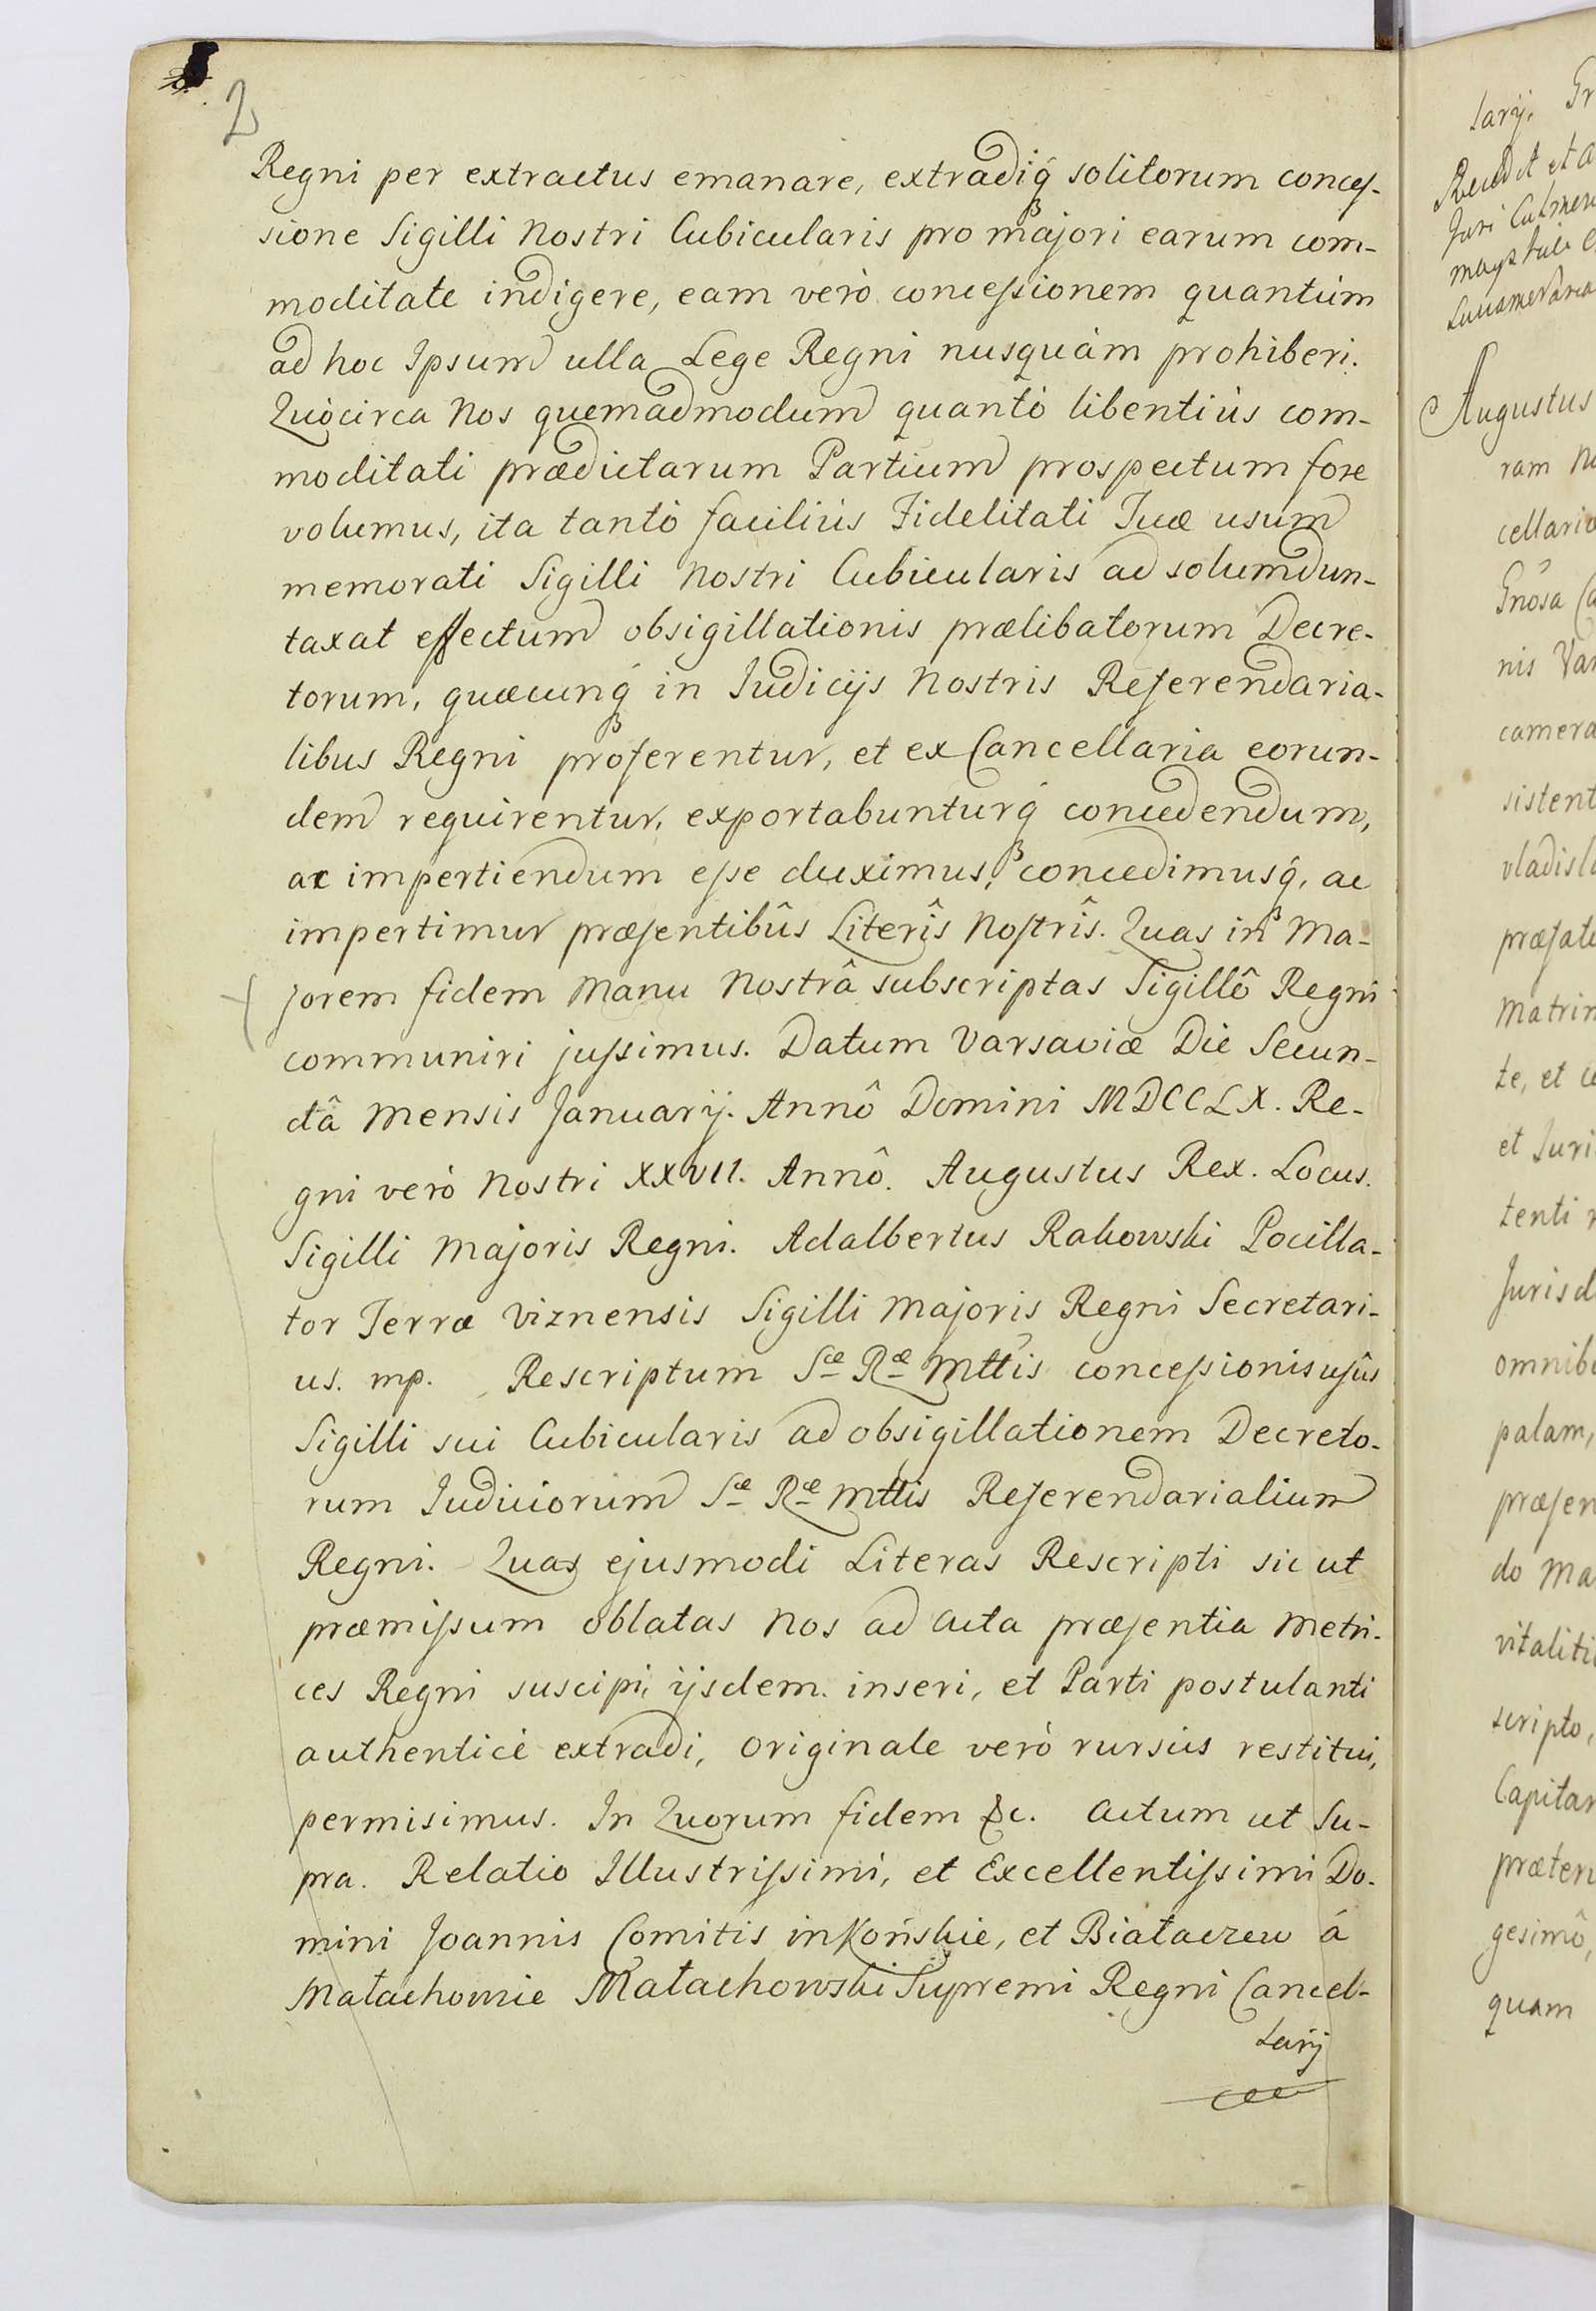 2
Regni per extractus emanare, extradiq́ solitorum conces-
sione Sigilli Nostri Cubicularis pro majori earum com-
moditate indigere, eam verò concessionem quantùm
ad hoc Ipsum ulla Lege Regni nusquàm prohiberi.
Quòcirca Nos quemadmodum quantò libentiùs com-
moditati prædictarum Partium prospectum fore
volumus, ita tantò faciliùs Fidelitati Tuæ usum
memorati Sigilli Nostri Cubicularis ad solumdun-
taxat effectum obsigillationis prælibatorum Decre-
torum, quæcunq́ in Judicijs Nostris Referendaria-
libus Regni proferentur, et ex Cancellaria eorun-
dem requirentur, exportabunturq́ concedendum,
ac impertiendum esse duximus, concedimusq́, ac
impertimur præsentibûs Literîs Nostrîs. Quas in Ma-
jorem fidem Manu Nostrâ subscriptas Sigillô Regni
communiri jussimus. Datum Varsaviæ Die Secun-
dâ Mensis Januarij. Annô Domini MDCCLX. Re-
gni verò Nostri XXVII. Annô. Augustus Rex. Locus.
Sigilli Majoris Regni. Adalbertus Rakowski Pocilla-
tor Terræ Viznensis Sigilli Majoris Regni Secretari-
us. mp. Rescriptum Sæ Ræ Mttis concessionis usûs
Sigilli sui Cubicularis ad obsigillationem Decreto-
rum Judiciorum Sæ Ræ Mttis Referendarialium
Regni. Quas ejusmodi Literas Rescripti sic ut
præmissum oblatas Nos ad Acta præsentia Metri-
ces Regni suscipi, ijsdem. inseri, et Parti postulanti
authenticè extradi, Originale verò rursùs restitui,
permisimus. In Quorum fidem &c. Actum ut Su-
pra. Relatio Illustrissimi, et Excellentissimi Do-
mini Joannis Comitis in Końskie, et Białaczew á
Małachowie Małachowski Supremi Regni Cancel-
larij
larij. Gr
Augustus
ram
cellario
Gnosa
nis Var
camera
sistent
vladisla
præfat
Matrim
te, et
et Juri
tenti
Jurisd
omnib
palam,
præsen
do Ma
vitaliti
scripto,
Capitan
præten
gesimô,
quam